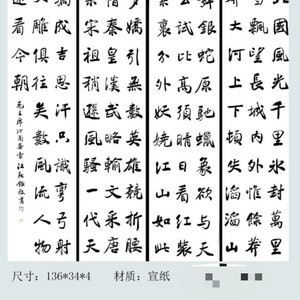 國風光千里冰封萬里
飄望長城內外惟餘莽
河上下頓失滔滔山
銀蛇原馳蠟象欲與天
比高須晴日看紅裝素
裹分外妖嬈江山如此
數英雄競折腰
皇漢武略輸文采唐
宋祖稍遜風騷一代天
成吉思汗只識彎弓射
雕俱往矣數風流人物
還看今朝
毛主席沁園春雪
尺寸：136*34*4 材质：宣纸